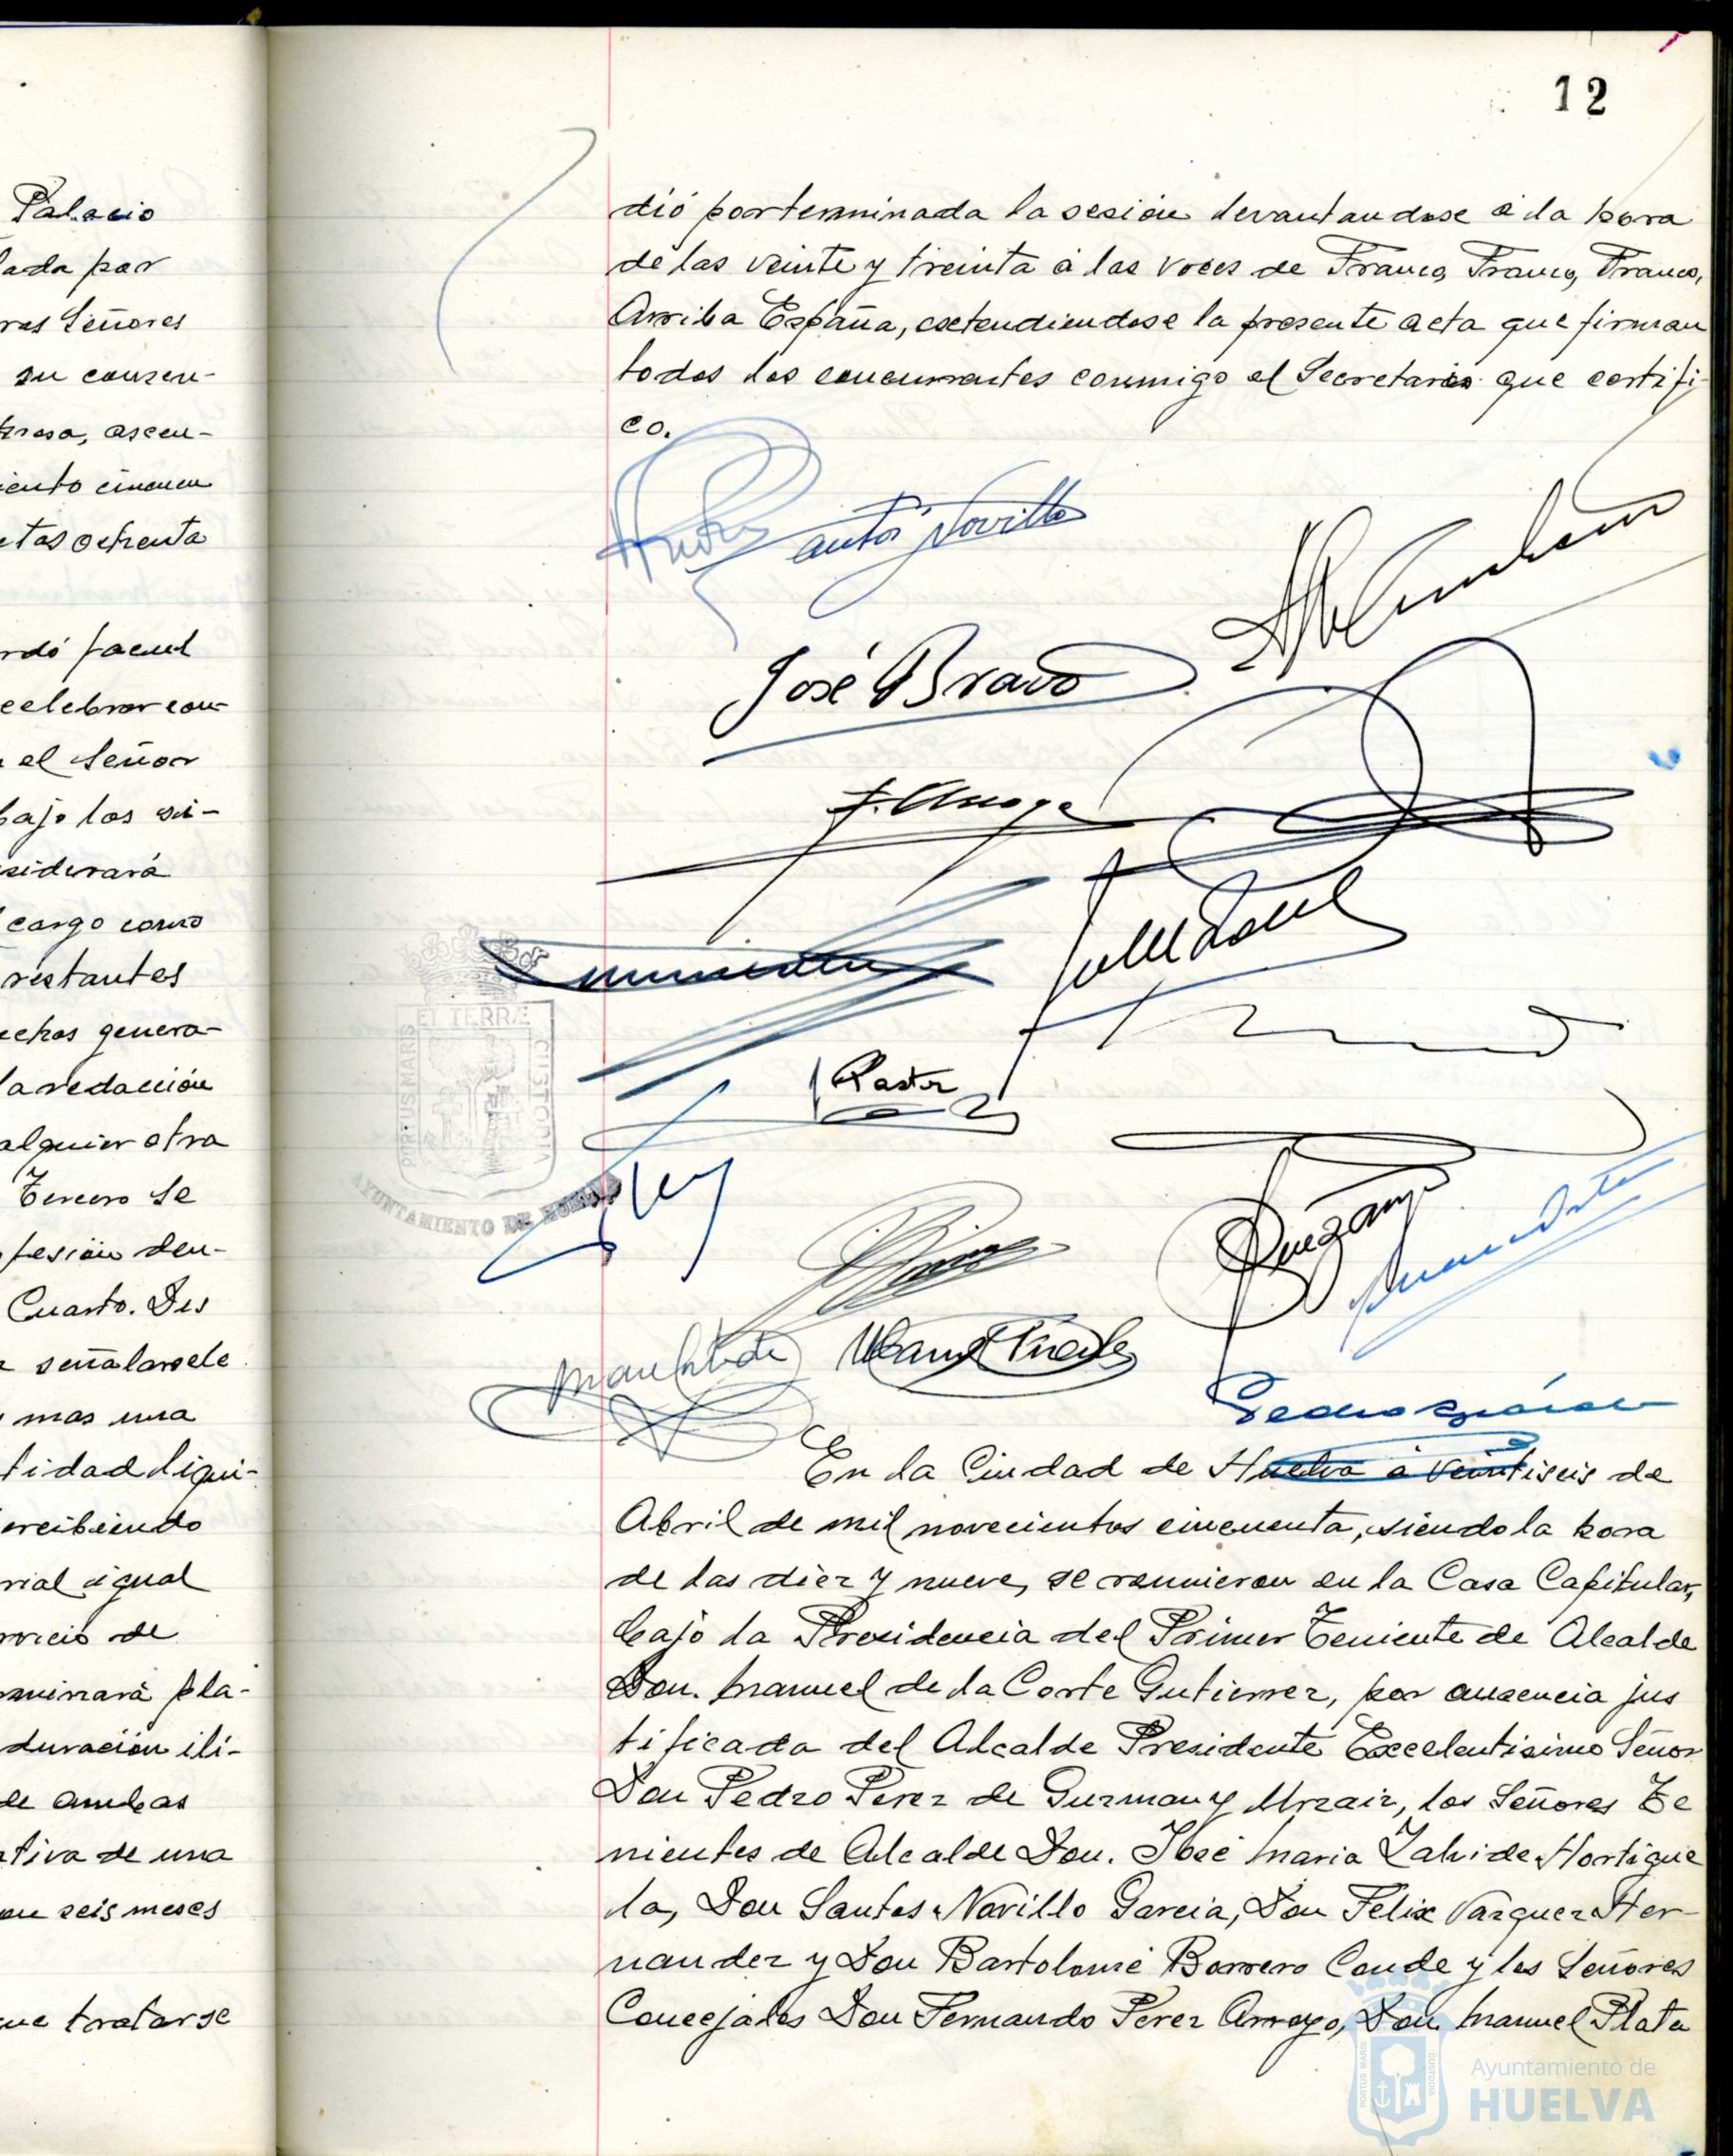 Palacio
lada por
ras Señores
su consen-
tresa, ascen-
iento cincuen
etas ochenta
rdó facul
celebrar con-
el Señor
bajo los si-
siderará
cargo como
restantes
echos genera-
la redacción
alquier otra
Tercero Se
fesión den-
Cuarto. Des
señalarsele
mas una
tidad liqui-
ercibiendo
rial igual
rvicio de
minará pla-
duración ili-
de ambas
tiva de una
on seis meses
que tratarse
12
dió por terminada la sesión levantandose á la hora
de las veinte y treinta á las voces de Franco, Franco, Franco,
Arriba España, extendiendose la presente acta que firman
todos los concurrentes conmigo el Secretario que certifi-
co.
Santos Novillo
José Bravo
F. Arroyo
Pastor
ET TERRÆ
PORTUS MARIS
CUSTODIA
AYUNTAMIENTO DE HUELVA
En la Ciudad de Huelva á veintiseis de
Abril de mil novecientos cincuenta, siendo la hora
de las diez y nueve, se reunieron en la Casa Capitular,
bajo la Presidencia del Primer Teniente de Alcalde
Don. Manuel de la Corte Gutierrez, por ausencia jus
tificada del Alcalde Presidente Excelentisimo Señor
Don Pedro Perez de Guzman y Urzaiz, los Señores Te
nientes de Alcalde Don. José Maria Zalvide Hortigue
la, Don Santos Novillo Garcia, Don Felix Vazquez Her-
nandez y Don Bartolomé Borrero Conde y los Señores
Concejales Don Fernando Perez Arroyo, Don. Manuel Plata
PORTUS MARIS
CUSTODIA
Ayuntamiento de
HUELVA